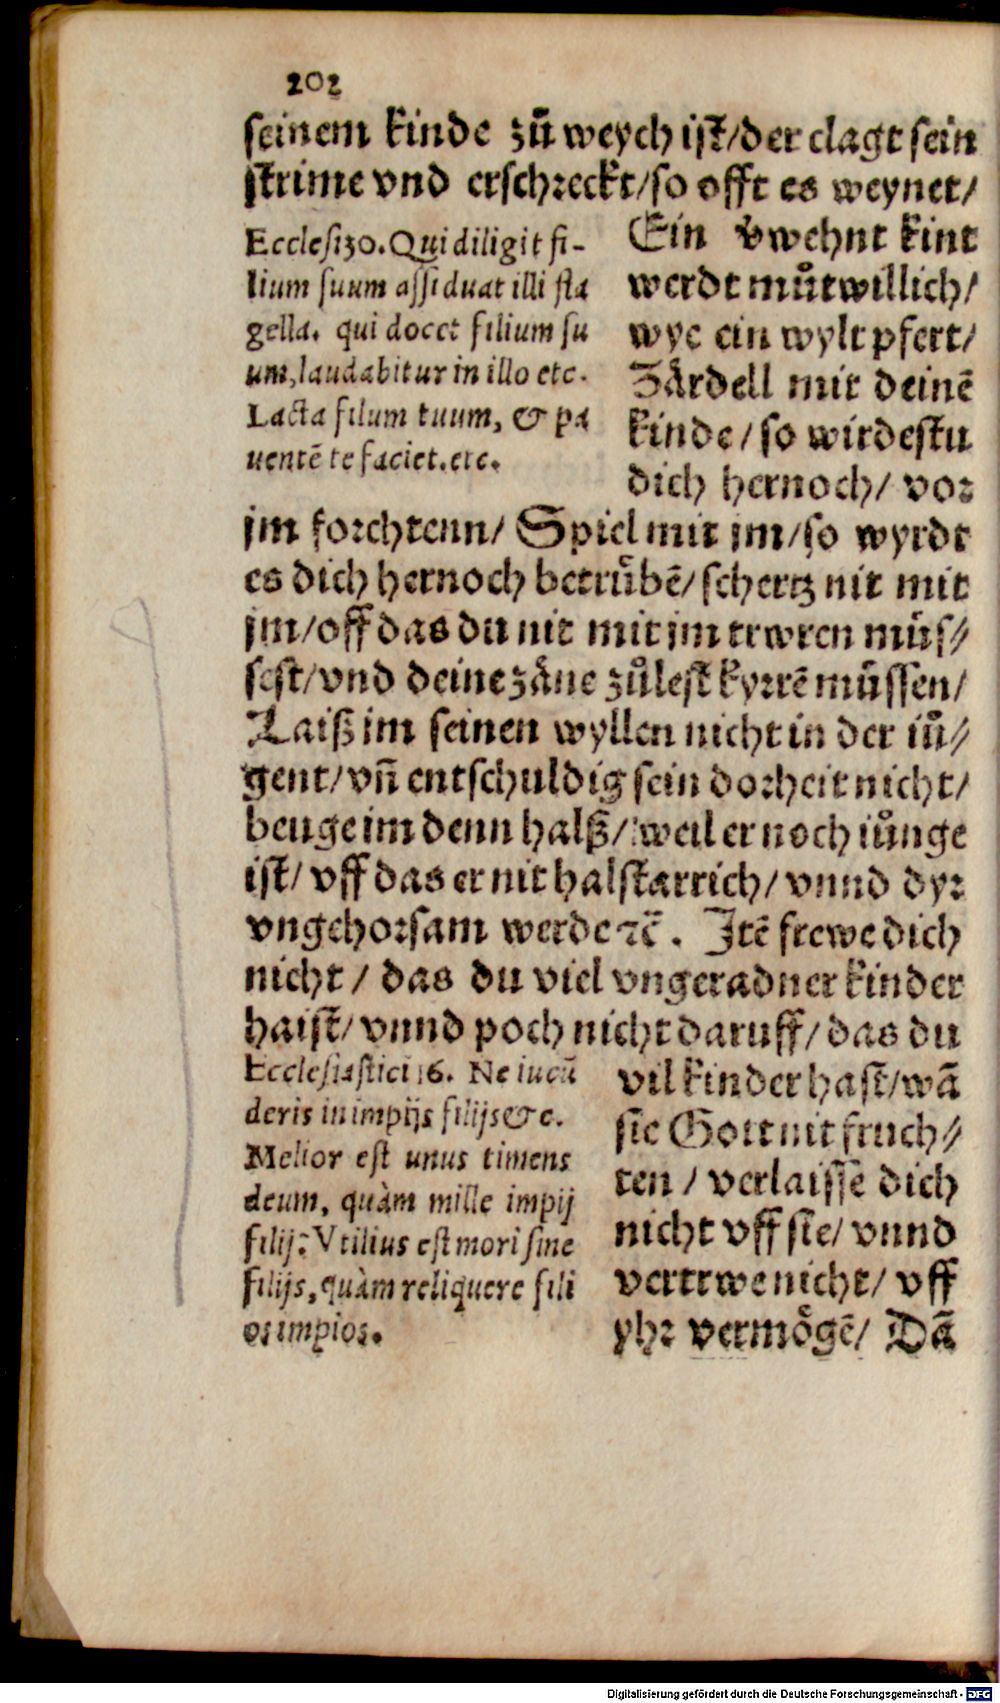 202
seinem kinde zů weych ist/der clagt sein
strime vnd erschreckt/so offt es weynet/
Ecclesi30. Qui diligit fi-
lium suum assiduat illi fla
gella. qui docet filium su
um, laudabitur in illo etc.
Lacta filum tuum, & pa
uentē te faciet. etc.
Ein v̄wehnt kint
werdt můtwillich/
wye ein wylt pfert/
Zårdell mit deinē
kinde/so wirdestu
dich hernoch/ vor
jm forchtenn/ Spiel mit jm/so wyrdt
es dich hernoch betrůbē/schertz nit mit
jm/off das du nit mit jm trwren můs⸗
sest/vnd deine zåne zůlest kyrrē můssen/
Laiß im seinen wyllen nicht in der iů⸗
gent/vn̄ entschuldig sein dorheit nicht/
beuge im denn halß/weil er noch iůnge
ist/ vff das er nit halstarrich/ vnnd dyr
vngehorsam werde ꝛc̄. Jtē frewe dich
nicht / das du viel vngeradner kinder
haist/ vnnd poch nicht daruff/ das du
Ecclesiastici 16. Ne iucū
deris in impijs filijs &c.
Melior est unus timens
deum, quàm mille impij
filij: Vtilius est mori sine
filijs, quàm reliquere fili
os impios.
vil kinder hast/wā
sie Gott nit fruch⸗
ten / verlaisse dich
nicht vff sie/ vnnd
vertrwe nicht/ vff
yhr vermögē/ Dā
Digitalisierung gefördert durch die Deutsche Forschungsgemeinschaft - DFG